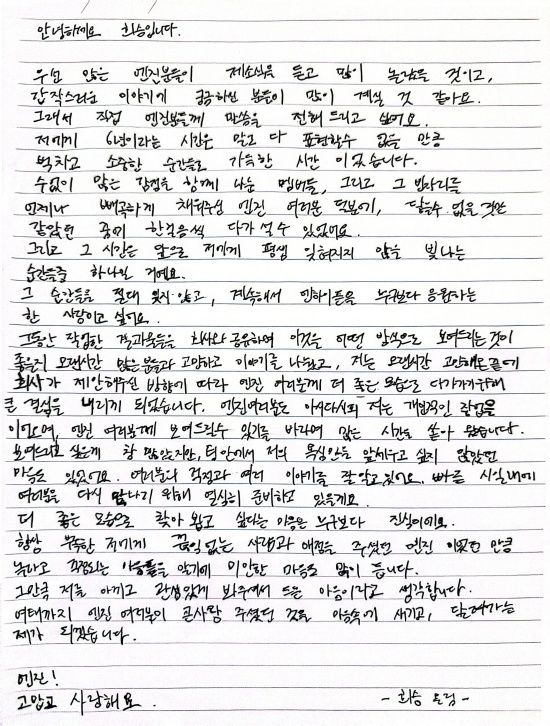 안녕하세요 희승입니다.
우선 많은 엔진분들이 제소식을 듣고 많이 놀랐을 것이고,
갑작스러운 이야기에 궁금하신 분들이 많이 계실 것 같아요.
그래서 직접 엔진분들께 말씀을 전해 드리고 싶어요.
저에게 6년이라는 시간은 말로 다 표현할수 없을 만큼
벅차고 소중한 순간들로 가득한 시간 이었습니다.
수없이 많은 감정을 함께 나눈 멤버들, 그리고 그 빈자리를
언제나 빼곡하게 채워주신 엔진 여러분 덕분에, 닿을수 없을 것만
같았던 꿈에 한걸음씩 다가설 수 있었어요.
그리고 그 시간은 앞으로 저에게 평생 잊혀지지 않을 빛나는
순간들중 하나일 거예요.
그 순간들을 절대 잊지 않고, 계속해서 엔하이픈을 누구보다 응원하는
한 사람이고 싶어요.
그동안 작업한 결과물들을 회사와 공유하며 이것을 어떤 방식으로 보여드리는것이
좋을지 오랜시간 많은 분들과 고민하고 이야기를 나눴고, 저는 오랜시간 고민해온 끝에
회사가 제안해주신 방향에 따라 엔진 여러분께 더 좋은 모습으로 다가가기위해
큰 결심을 내리게 되었습니다. 엔진여러분도 아시다시피 저는 개인적인 작업을
이어오며, 엔진 여러분께 보여드릴수 있기를 바라며 많은 시간을 쏟아 왔습니다.
보여드리고 싶은게 참 많았지만, 팀 안에서 저의 욕심만을 앞세우고 싶지 않았던
마음도 있었어요. 여러분의 걱정과 여러 이야기를 잘 알고 있어요. 빠른 시일내에
여러분을 다시 만나기 위해 열심히 준비하고 있을게요.
더 좋은 모습으로 찾아 뵙고 싶다는 마음은 누구보다 진심이에요.
항상 부족한 저에게 끊임없는 사랑과 애정을 주셨던 엔진 이었던 만큼
놀라고 걱정되는 마음들을 알기에 미안한 마음도 많이 듭니다.
그만큼 저를 아끼고 관심있게 봐주셔서 드는 마음이라고 생각합니다.
여태까지 엔진 여러분이 큰사랑 주셨던 것을 마음속에 새기고, 달려가는
제가 되겠습니다.
엔진!
고맙고 사랑해요.
- 희승 올림 -